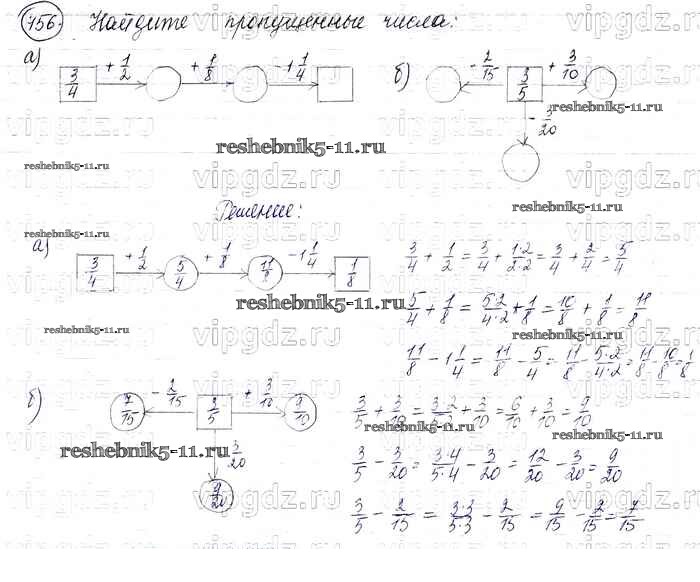 756. Найдите пропущенные числа:
а) 3/4 + 1/2 + 1/8 - 1 1/4
б) - 2/15 3/5 + 3/10
- 3/20
reshebnik5-11.ru
Решение:
а) 3/4 + 1/2 5/4 + 1/8 11/8 - 1 1/4 1/8
3/4 + 1/2 = 3/4 + 1·2/2·2 = 3/4 + 2/4 = 5/4
5/4 + 1/8 = 5·2/4·2 + 1/8 = 10/8 + 1/8 = 11/8
11/8 - 1 1/4 = 11/8 - 5/4 = 11/8 - 5·2/4·2 = 11/8 - 10/8 = 1/8
б) 7/15 - 2/15 3/5 + 3/10 9/10
3/20
9/20
3/5 + 3/10 = 3·2/5·2 + 3/10 = 6/10 + 3/10 = 9/10
3/5 - 3/20 = 3·4/5·4 - 3/20 = 12/20 - 3/20 = 9/20
3/5 - 2/15 = 3·3/5·3 - 2/15 = 9/15 - 2/15 = 7/15
reshebnik5-11.ru
vipgdz.ru